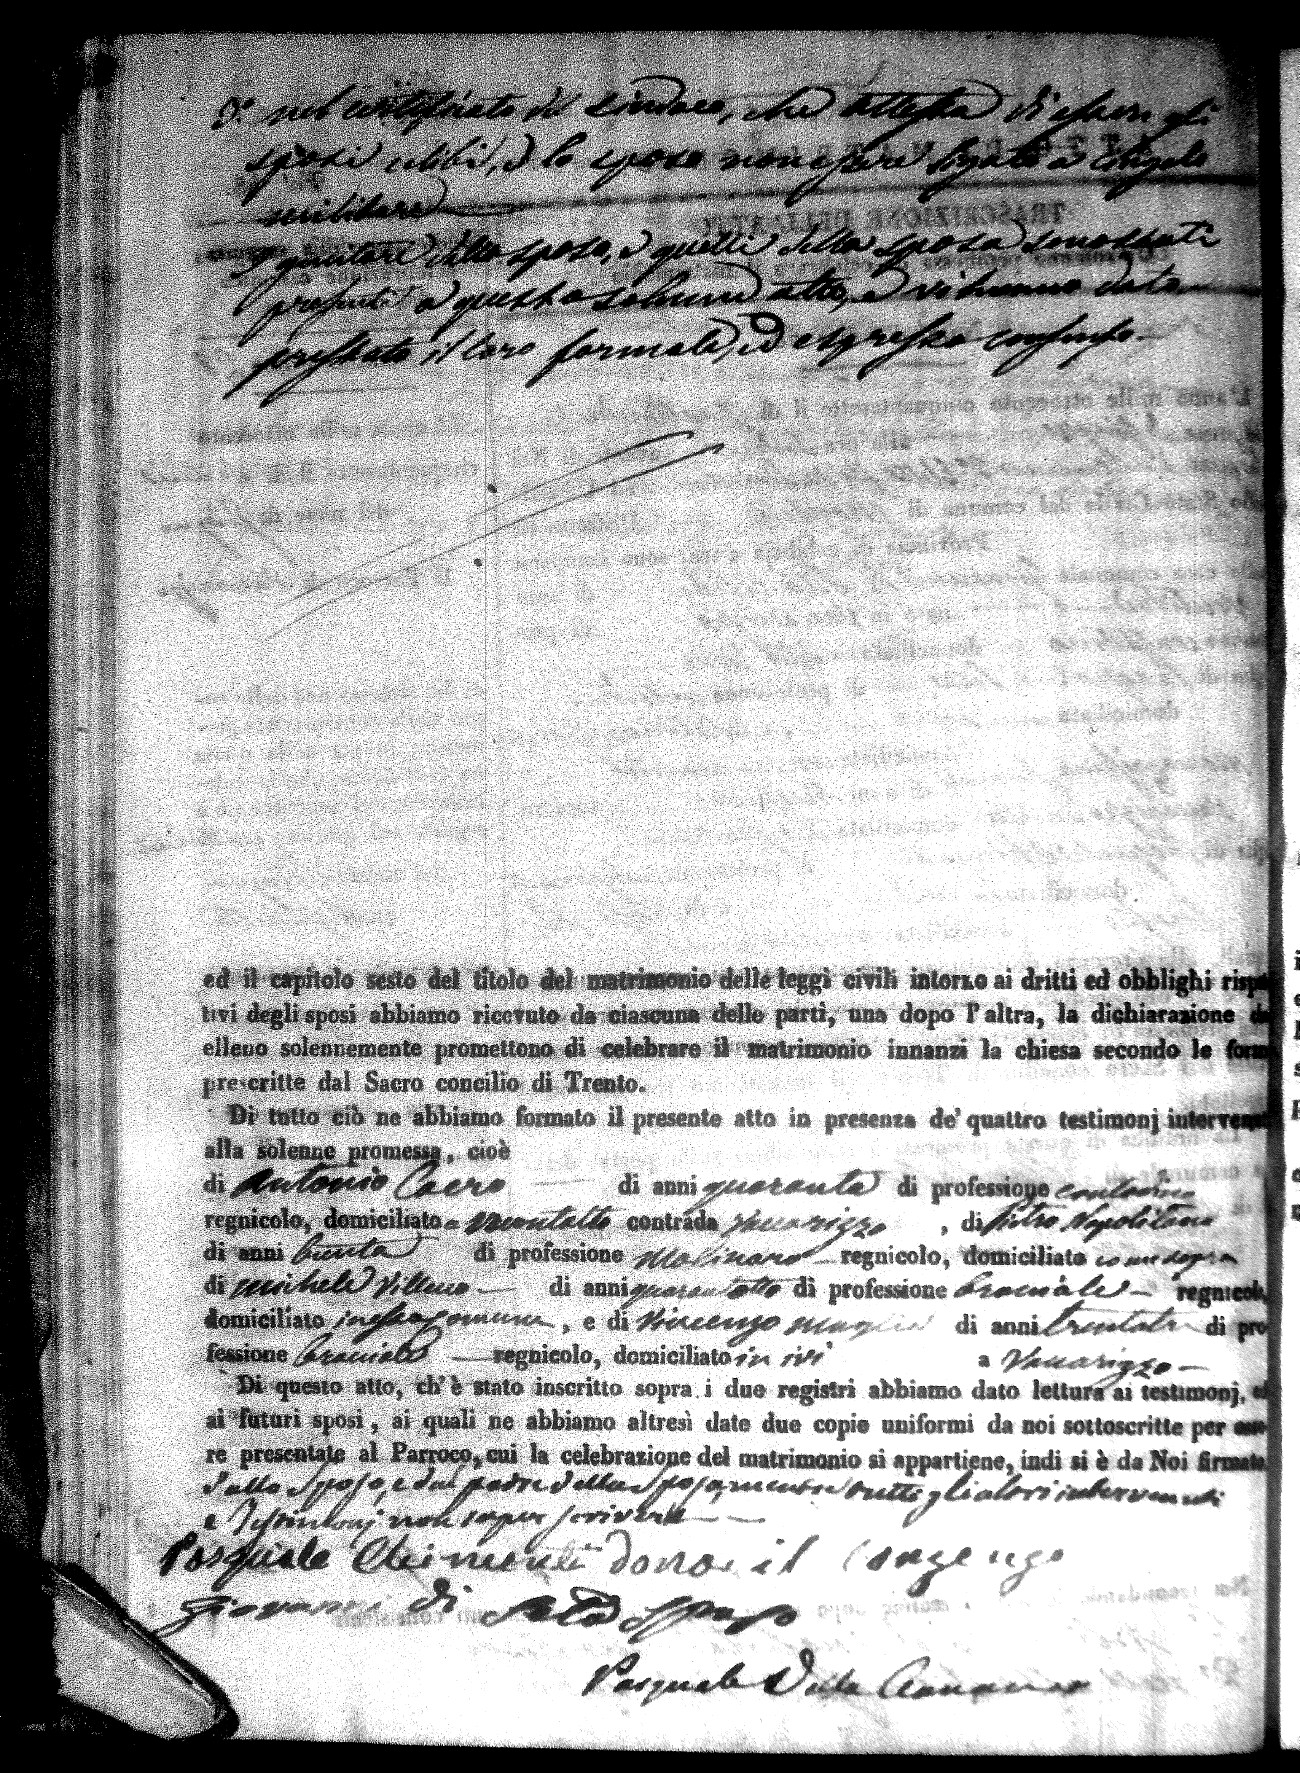 3.° nel certificato del Sindaco, che attesta di essere gli
sposi celibi, e lo sposo non essere legato a congedo
militare
I genitori dello sposo, e quelli della sposa sono stati
presenti a questo solenne atto, e vi hanno dato
prestato il loro formale, ed espresso consenso
ed il capitolo sesto del titolo del matrimonio delle leggi civili intorno ai dritti ed obblighi rispe
tivi degli sposi abbiamo ricevuto da ciascuna delle parti, una dopo l'altra, la dichiarazione
elleno solennemente promettono di celebrare il matrimonio innanzi la chiesa secondo le form
prescritte dal Sacro concilio di Trento.
Di tutto ciò ne abbiamo formato il presente atto in presenza de' quattro testimonj interven
alla solenne promessa, cioè
di Antonio di anni quaranta di professione contadino
regnicolo, domiciliato a contrada Vaccarizzo, di Pietro Napolitano
di anni trenta di professione Molinaro regnicolo, domiciliato come sopra
di Michele di anni quarantotto di professione bracciale regnicolo,
domiciliato in esso comune, e di Vincenzo di anni trentatre di pro
fessione bracciale regnicolo, domiciliato in ivi a Vaccarizzo
Di questo atto, ch'è stato inscritto sopra i due registri abbiamo dato lettura ai testimonj, e
ai futuri sposi, ai quali ne abbiamo altresì date due copie uniformi da noi sottoscritte per esse
re presentate al Parroco, cui la celebrazione del matrimonio si appartiene, indi si è da Noi firmato
dallo Sposo, e dal padre della Sposa, mentre tutti gli altri intervenuti
e Testimonj non saper scrivere
Pasquale Chimenti dono il
Giovanni di Seta Sposo
Pasquale Della